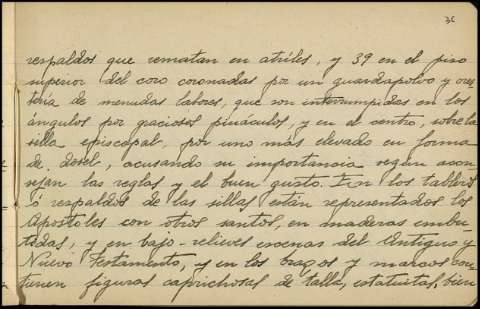 36
respaldos que rematan en atriles, y 39 en el piso
superior del coro coronadas por un guardapolvo y cres-
tería de menudas labores, que son interrumpidas en los
ángulos por graciosos pináculos, y en el centro, sobre la
silla episcopal, por uno más elevado en forma
de dosel, acusando su importancia según acon-
sejan las reglas y el buen gusto. En los tableros
ó respaldos de las sillas están representados los
Apóstoles con otros santos, en maderas embu-
tidas, y en bajo-relieves escenas del Antiguo y
Nuevo Testamento, y en los brazos y marcos con-
tienen figuras caprichosas de talla, estatuitas, bien